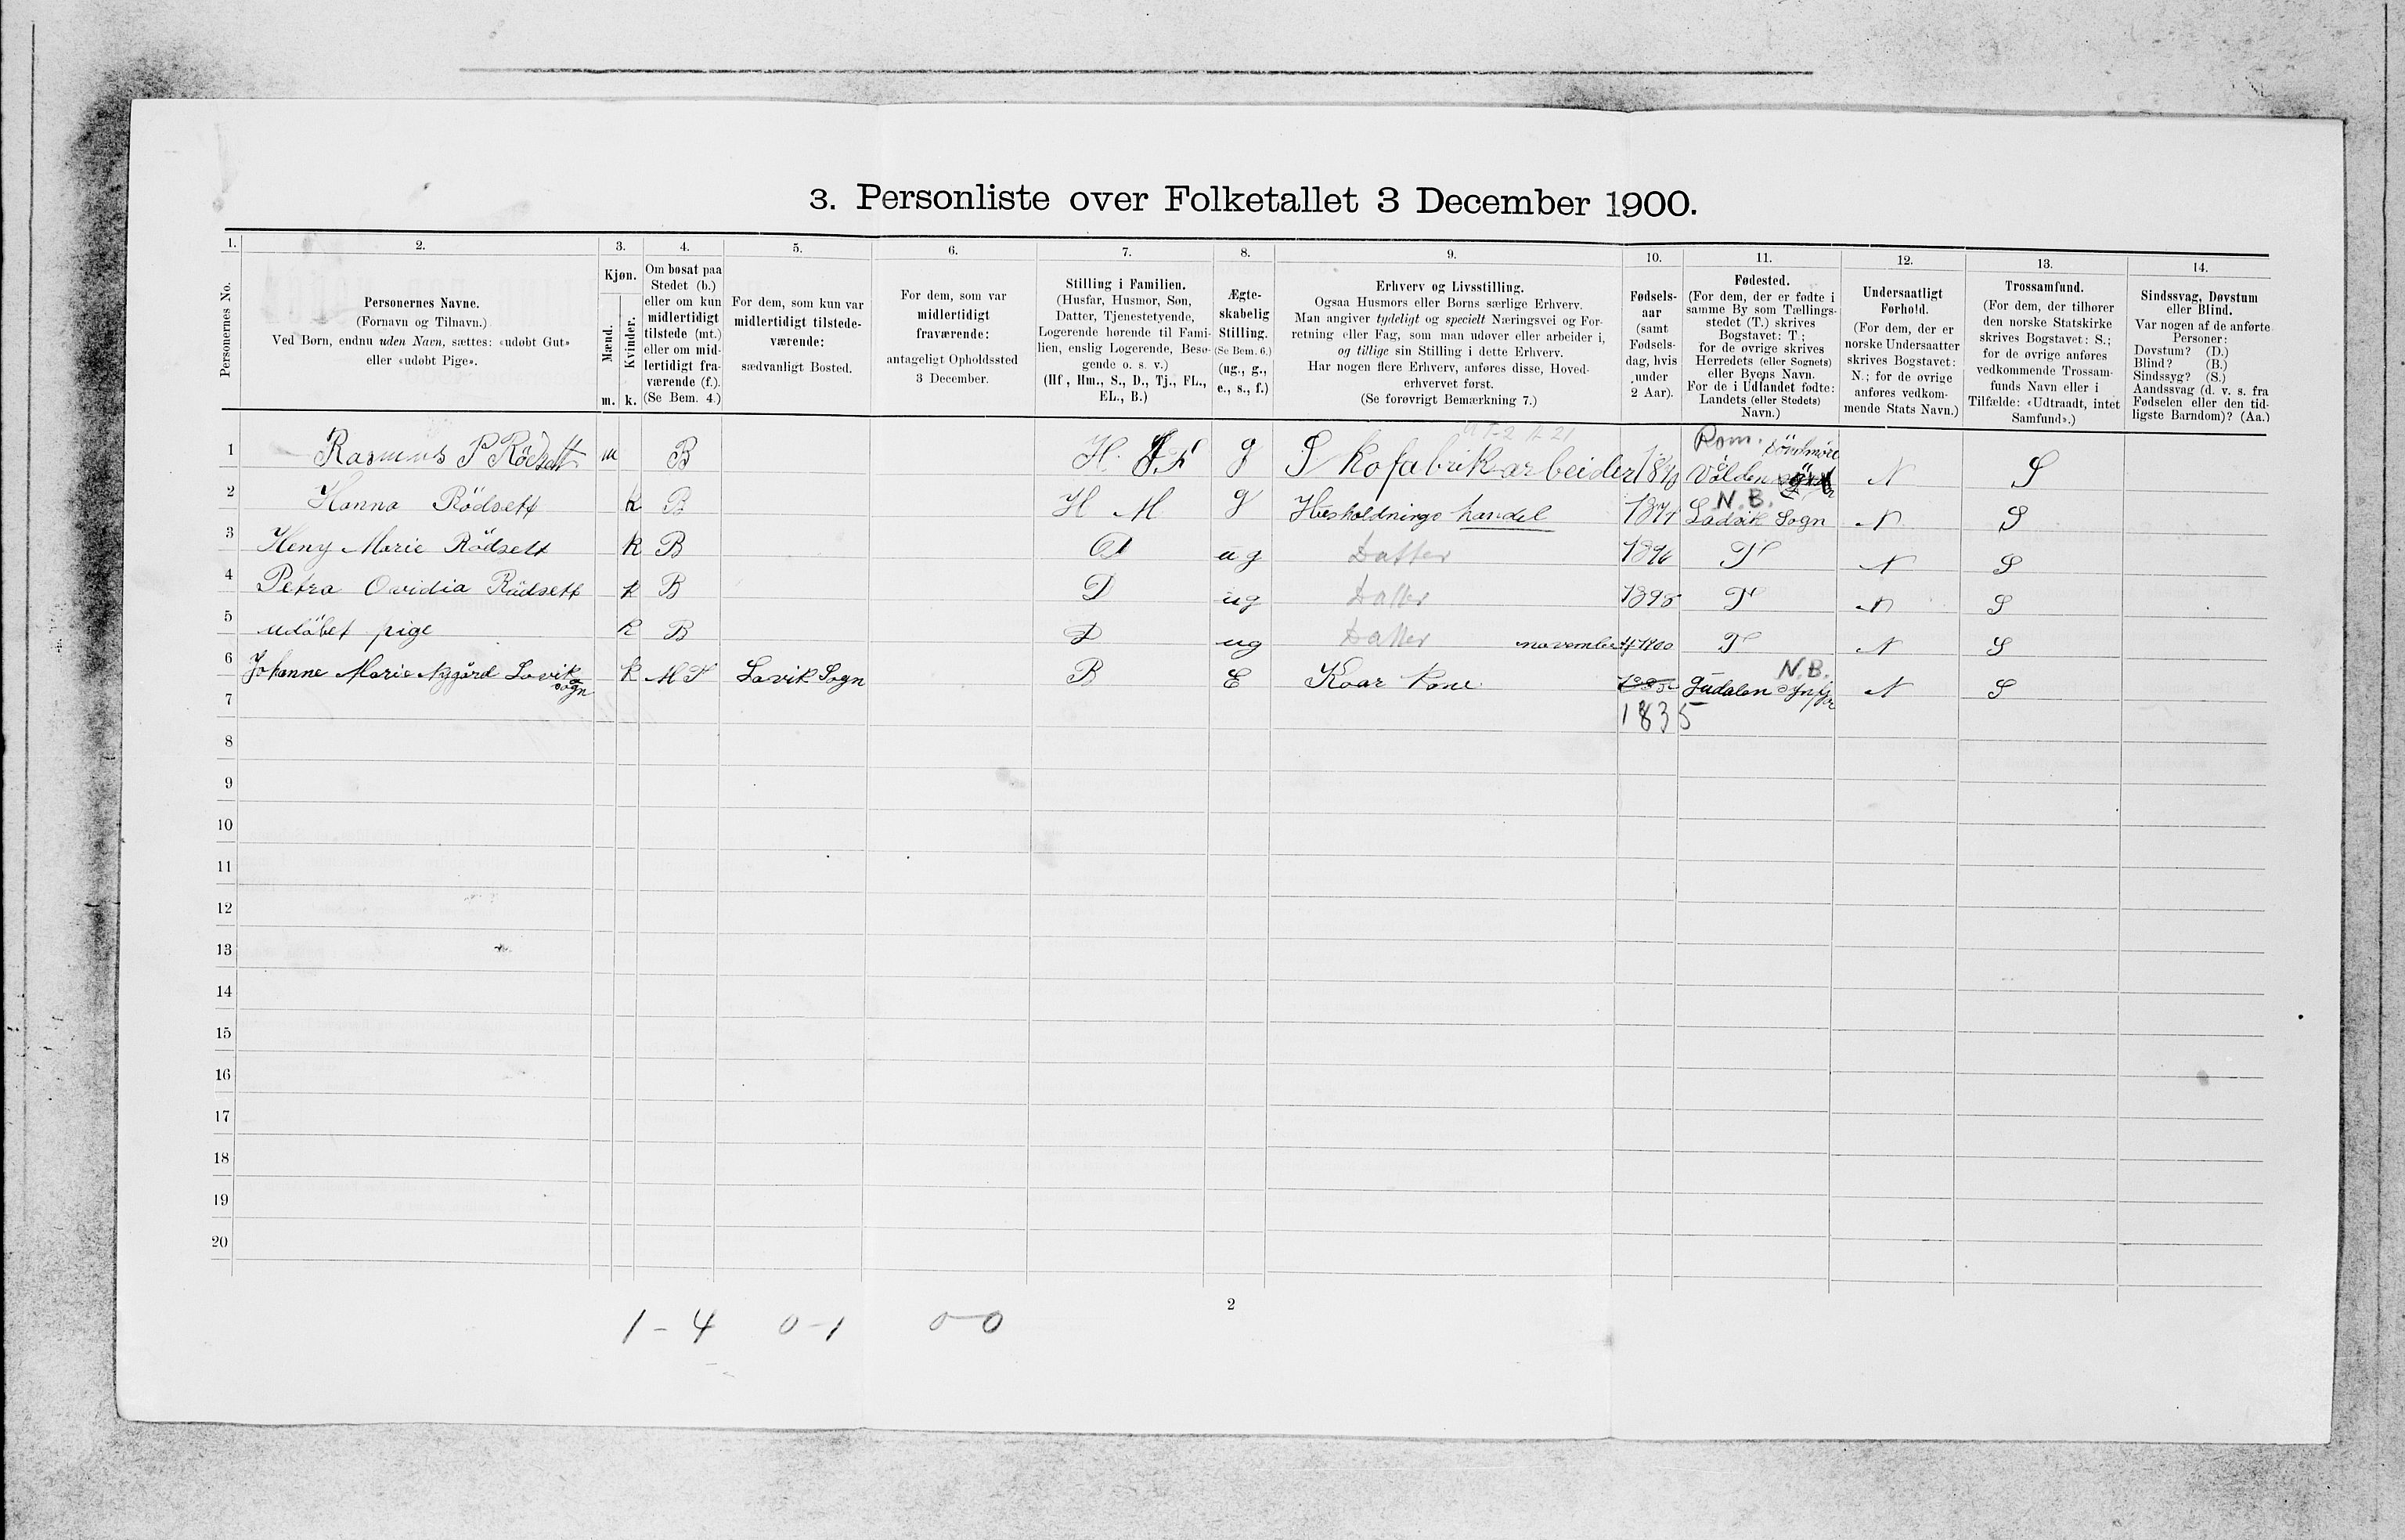 3. Personliste over Folketallet 3 December 1900.
1. 2. 3. 4. 5. 6. 7. 8. 9. 10. 11. 12. 13. 14.
Personernes No.
Personernes Navne.
(Fornavn og Tilnavn.)
Ved Børn, endnu uden Navn, sættes: «udøbt Gut»
eller «udøbt Pige».
Kjøn.
Mænd.
Kvinder.
m. k.
Om bosat paa
Stedet (b.)
eller om kun
midlertidigt
tilstede (mt.)
eller om mid-
lertidigt fra-
værende (f.).
(Se Bem. 4.)
For dem, som kun var
midlertidigt tilstede-
værende:
sædvanligt Bosted.
For dem, som var
midlertidigt
fraværende:
antageligt Opholdssted
3 December.
Stilling i Familien.
(Husfar, Husmor, Søn,
Datter, Tjenestetyende,
Logerende hørende til Fami-
lien, enslig Logerende, Besø-
gende o. s. v.)
(Hf., Hm., S., D., Tj., FL.,
EL., B.)
Ægte-
skabelig
Stilling.
(Se Bem. 6.)
(ug., g.,
e., s., f.)
Erhverv og Livsstilling.
Ogsaa Husmors eller Børns særlige Erhverv.
Man angiver tydeligt og specielt Næringsvei og For-
retning eller Fag, som man udøver eller arbeider i,
og tillige sin Stilling i dette Erhverv.
Har nogen flere Erhverv, anføres disse, Hoved-
erhvervet først.
(Se forøvrigt Bemærkning 7.)
Fødsels-
aar
(samt
Fødsels-
dag, hvis
under
2 Aar).
Fødested.
(For dem, der er fødte i
samme By som Tællings-
stedet (T.) skrives
Bogstavet: T;
for de øvrige skrives
Herredets (eller Sognets)
eller Byens Navn.
For de i Udlandet fødte:
Landets (eller Stedets)
Navn.)
Undersaatligt
Forhold.
(For dem, der er
norske Undersaatter
skrives Bogstavet:
N.; for de øvrige
anføres vedkom-
mende Stats Navn.)
Trossamfund.
(For dem, der tilhører
den norske Statskirke
skrives Bogstavet: S.;
for de øvrige anføres
vedkommende Trossam-
funds Navn eller i
Tilfælde: «Udtraadt, intet
Samfund».)
Sindssvag, Døvstum
eller Blind.
Var nogen af de anførte
Personer:
Døvstum? (D.)
Blind? (B.)
Sindssyg? (S.)
Aandssvag (d. v. s. fra
Fødselen eller den tid-
ligste Barndom)? (Aa.)
Rom. söndmöre
1 Rasmus P Rödsett m B H. F g Skofabrikarbeider Volden N S
N.B.
2 Hanna Rödsett k B H M g Husholdnings handel 1871 Ladvik Sogn N S
3 Heny Marie Rödsett k B D ug Datter 1896 T N S
4 Petra Ovidia Rödsett k B D ug Datter 1898 T N S
5 udöbet pige k B D ug Datter november 1900 T N S
N.B.
6 Johanne Marie Nygård Lavik sogn k M T Lavik Sogn B E Kaar Kone N S
7 1835
8
9
10
11
12
13
14
15
16
17
18
19
20
2
1 - 4 0 - 1 0-0